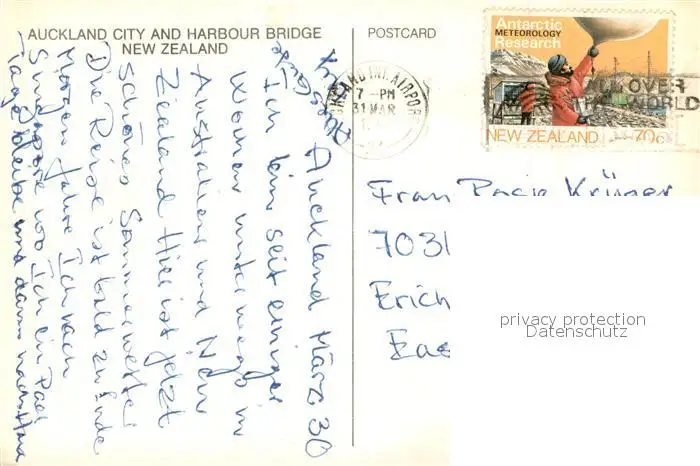 AUCKLAND CITY AND HARBOUR BRIDGE
NEW ZEALAND
POSTCARD
Antarctic
METEOROLOGY
Research
NEW ZEALAND 70c
AIRPOR
7-PM
31 MAR
ALL OVER
THE WORLD
Auckland März 30
Ich bin seit einigen
Wochen unterwegs in
Australien und New
Zealand Hier ist jetzt
schönes Sommerwetter
Die Reise ist bald zu Ende
Morgen fahre Ich nach
Singapore wo Ich ein Paar
Tage bleibe und dann nach
Frau Krüger
7031
Erich
privacy protection
Datenschutz